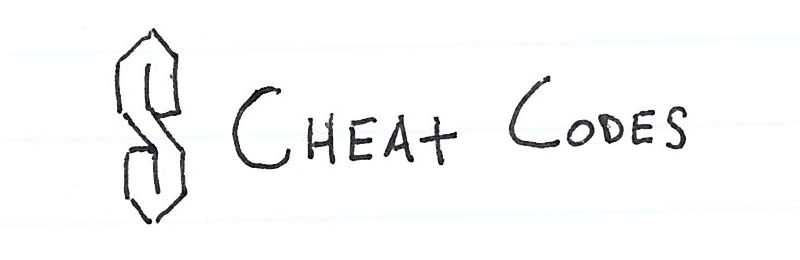 S CHEAT CODES